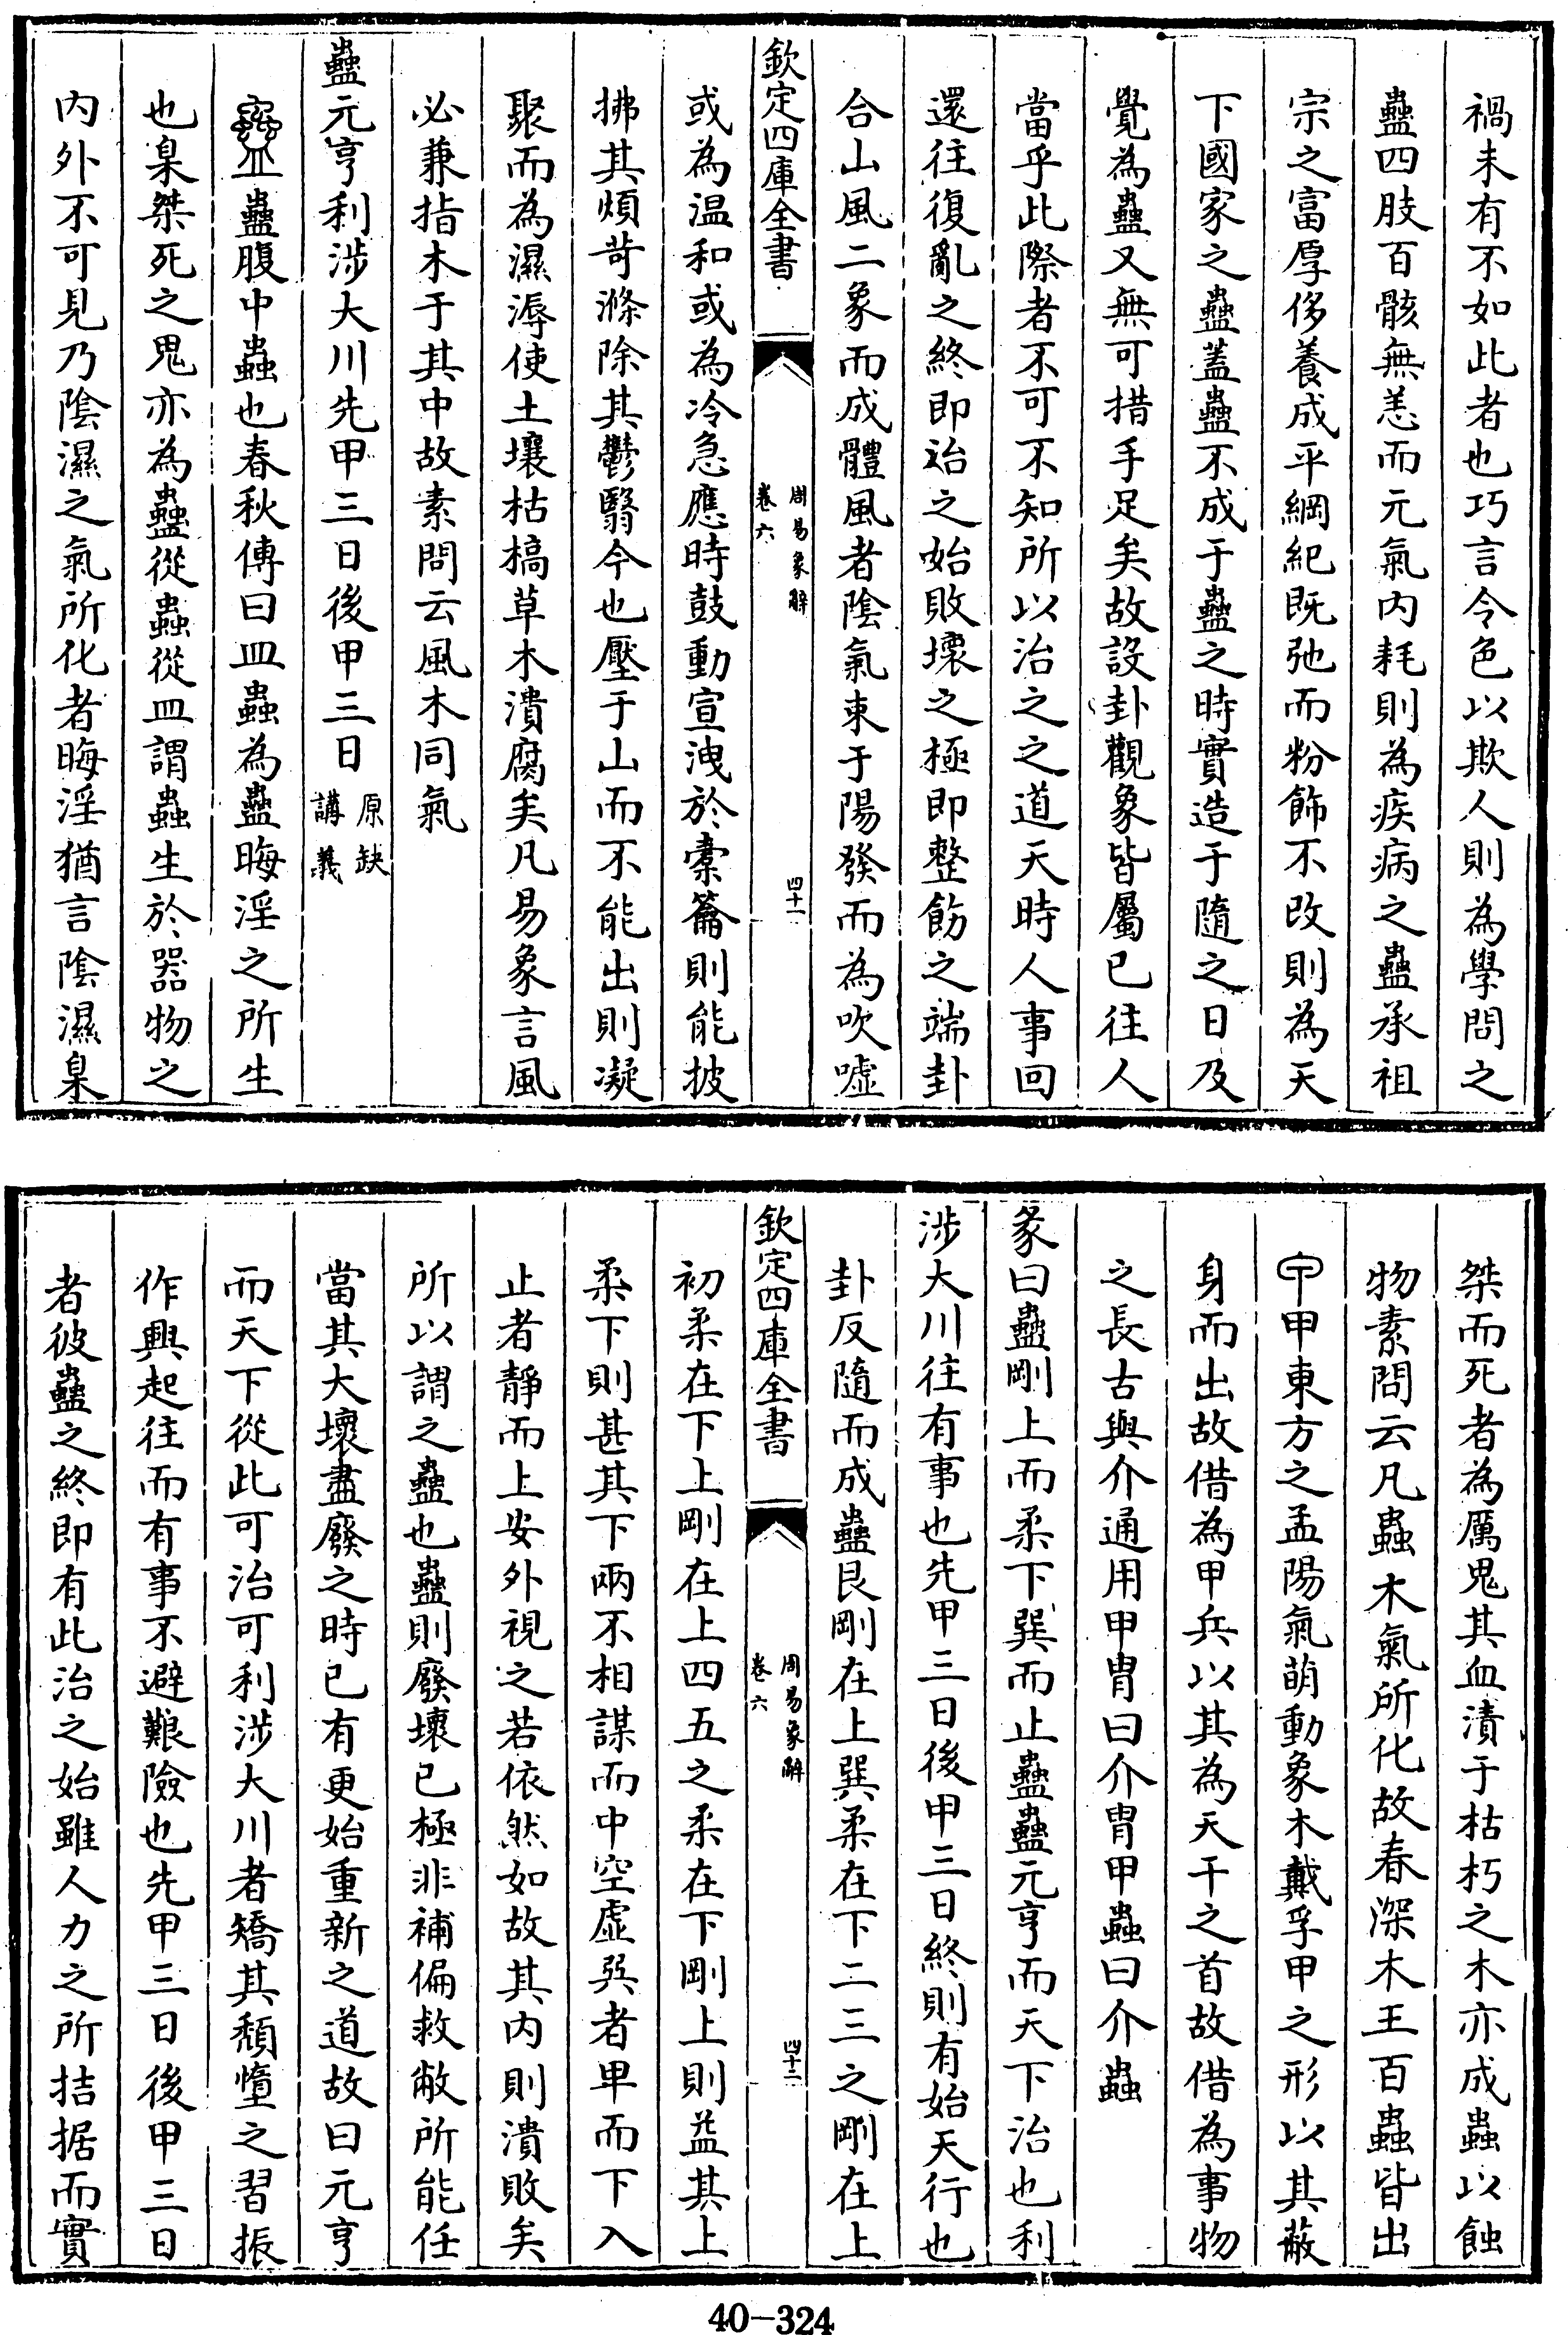 禍未有不如此者也巧言令色以欺人則為學問之
蠱四肢百骸無恙而元氣内耗則為疾病之蠱承祖
宗之富厚侈養成平綱紀既弛而粉飾不改則為天
下國家之蠱蓋蠱不成于蠱之時實造于隨之日及
覺為蠱又無可措手足矣故設卦觀象皆屬已往人
當乎此際者不可不知所以治之之道天時人事回
還往復亂之終即治之始敗壞之極即整飭之端卦
合山風二象而成體風者陰氣東于陽發而為吹噓
欽定四庫全書
周易象解
卷六
四十一
或為温和或為冷急應時鼓動宣洩於橐籥則能披
拂其煩苛滌除其鬱翳今也壓于山而不能出則凝
聚而為濕溽使土壤枯槁草木潰腐矣凡易象言風
必兼指木于其中故素問云風木同氣
蠱元亨利涉大川先甲三日後甲三日原缺講義
蠱腹中蟲也春秋傳曰皿蟲為蠱晦淫之所生
也臬桀死之鬼亦為蠱從蟲從皿謂蟲生於器物之
内外不可見乃陰濕之氣所化者晦淫猶言陰濕臬
桀而死者為厲鬼其血漬于枯朽之木亦成蟲以蝕
物素問云凡蟲木氣所化故春深木王百蟲皆出
甲東方之孟陽氣萌動象木戴孚甲之形以其蔽
身而出故借為甲兵以其為天干之首故借為事物
之長古與介通用甲胄曰介胄甲蟲曰介蟲
彖曰蠱剛上而柔下巽而止蠱蠱元亨而天下治也利
涉大川往有事也先甲三日後甲三日終則有始天行也
卦反隨而成蠱艮剛在上巽柔在下二三之剛在上
欽定四庫全書
周易象解
卷六
四十二
初柔在下上剛在上四五之柔在下剛上則益其上
柔下則甚其下兩不相謀而中空虛巽者卑而下入
止者靜而上安外視之若依然如故其内則潰敗矣
所以謂之蠱也蠱則廢壞已極非補偏救敝所能任
當其大壞盡廢之時已有更始重新之道故曰元亨
而天下從此可治可利涉大川者矯其頽惰之習振
作興起往而有事不避艱險也先甲三日後甲三日
者彼蠱之終即有此治之始雖人力之所拮据而實
40-324